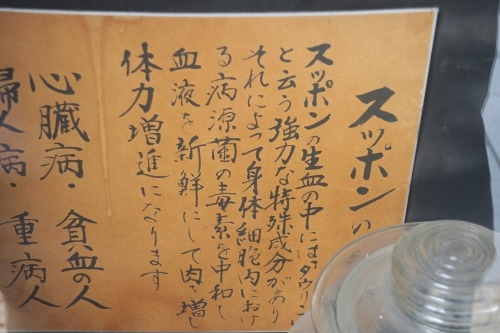 スッポンの
スッポンの生血の中には「タウリン
と云う強力な特殊成分があり
それによって身体細胞内におけ
る病源菌の毒素を中和し
血液を新鮮にして肉を増し
体力増進になります
心臓病・貧血の人
婦人病・重病人